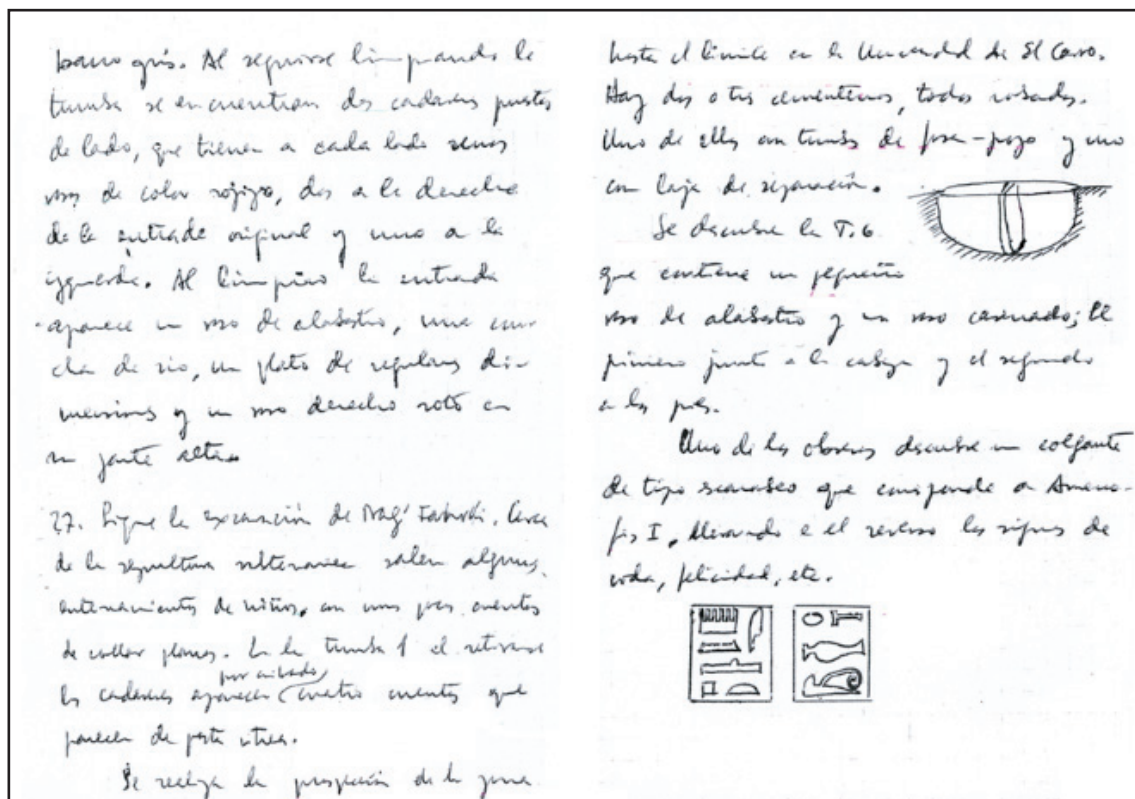 barro gris. Al seguirse limpiando la
tumba se encuentran dos cadaveres puestos
de lado, que tienen a cada lado
vasos de color rojizo, dos a la derecha
de la entrada original y uno a la
izquierda. Al limpiar la entrada
aparece un vaso de alabastro, una con-
cha de rio, un plato de regulares di-
mensiones y un vaso derecho roto en
su parte alta.
27. Sigue la excavación de Nag'. Cerca
de la sepultura subterranea salen algunos
enterramientos de niños, con unas pocas cuentas
de collar planas. En la tumba 1 al retirarse
los cadaveres aparecen (por cribado) cuatro cuentas que
parecen de pasta vitrea.
Se realiza la prospección de la zona
hasta el limite con la Universidad de El Cairo.
Hay dos otros cementerios, todos robados.
Uno de ellos con tumbas de fosa-pozo y uno
con laja de separación.
Se descubre la T.6.
que contiene un pequeño
vaso de alabastro y un vaso carenado; el
primero junto a la cabeza y el segundo
a los pies.
Uno de los obreros descubre un colgante
de tipo escarabeo que corresponde a Ameno-
fis I, llevando en el reverso los signos de
vida, felicidad, etc.